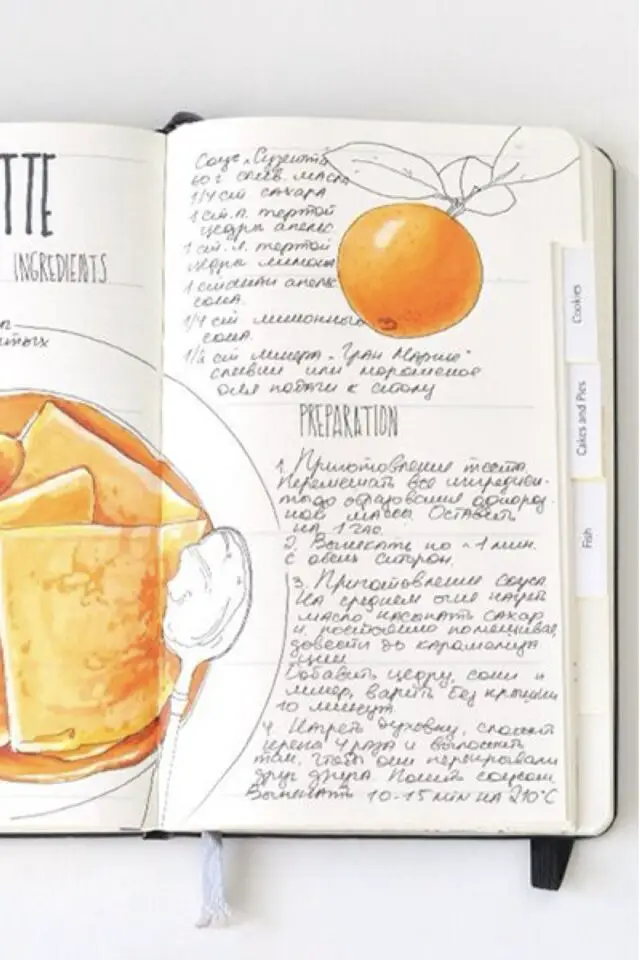 TTE
INGREDIENTS
Соус "Сюзетта
60 г слив. масла
1/4 ст сахара
1 ст. л. тертой
цедры апельс.
1 ст. л. тертой
цедры лимона
1 стакан апельс.
сока.
1/4 ст лимонного
сока.
1/2 ст ликера "Гран Марнье"
сливки или мороженое
для подачи к столу
PREPARATION
1. Приготовление теста.
Перемешать все ингредиен-
ты до образования однород-
ной массы. Оставить
на 1 час.
2. Выпекать по ~1 мин.
с обеих сторон.
3. Приготовление соуса
На среднем огне нагреть
масло насыпать сахар
и, постоянно помешивая,
довести до карамелиза
ции
Добавить цедру, соки и
ликер, варить без крышки
10 минут.
4. Нагреть духовку, сложить
крепы 4 раза и выложить
так, чтобы они перекрывали
друг друга. Полить соусом.
Выпекать 10-15 min на 210°C
Cookies
Cakes and Pies
Fish